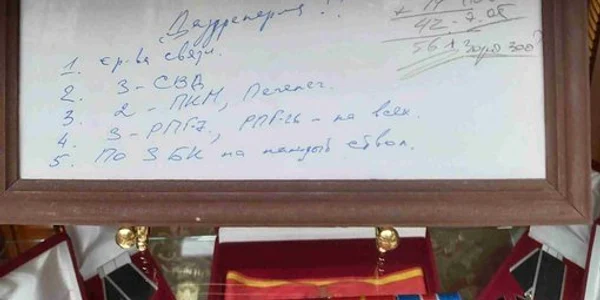 42-9.05
561 Зоря 300
1. ср-ва связи.
2. 3-СВД
3. 2-ПКМ, Печенег.
4. 3-РПГ-7, РПГ-26-на всех.
5. По 3 БК на каждый ствол.